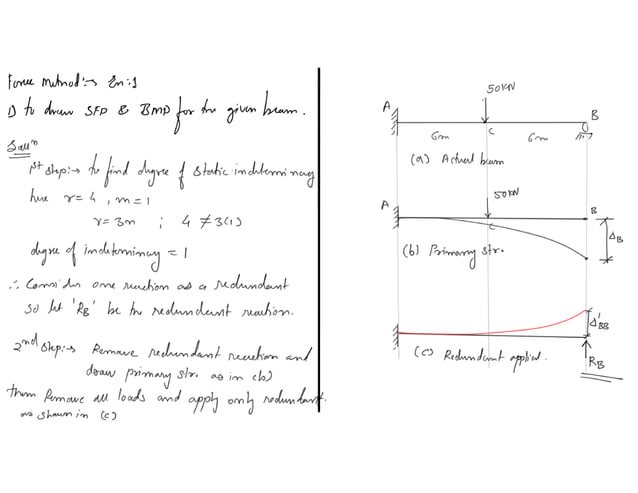 Force Method:→ Ex:1
1) to draw SFD & BMD for the given beam.
Solun
1st step:→ to find degree of static indeterminacy
here r=4, m=1
r=3m ; 4 ≠ 3(1)
degree of indeterminacy = 1
∴ Consider one reaction as a redundant
so let 'RB' be the redundant reaction.
2nd step:→ Remove redundant reaction and
draw primary str. as in (b)
then Remove all loads and apply only redundant.
as shown in (c)
50KN
A
B
C
6m
6m
(a) Actual beam
50KN
A
B
C
ΔB
(b) Primary str.
Δ'BB
(c) Redundant applied.
RB